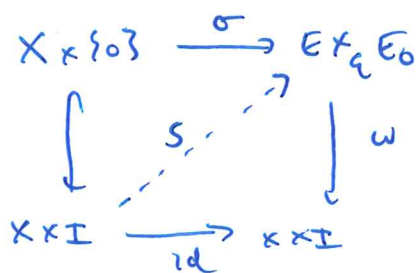 X × {0} σ E ×_q E_0
S ω
X × I id X × I